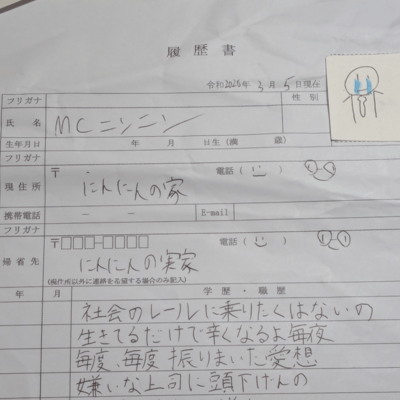 履歴書
令和2026年 3月 5日現在
フリガナ
性別
氏名 MCニンニン
生年月日 年 月 日生(満 歳)
フリガナ
〒 電話( )
現住所 にんにんの家
携帯電話 － － E-mail
フリガナ
〒□□□-□□□□ 電話( )
帰省先 にんにんの実家
(現住所以外に連絡を希望する場合のみ記入)
年 月 学歴・職歴
社会のレールに乗りたくはないの
生きてるだけで辛くなるよ毎夜
毎度、毎度振りまいた愛想
嫌いな上司に頭下げんの